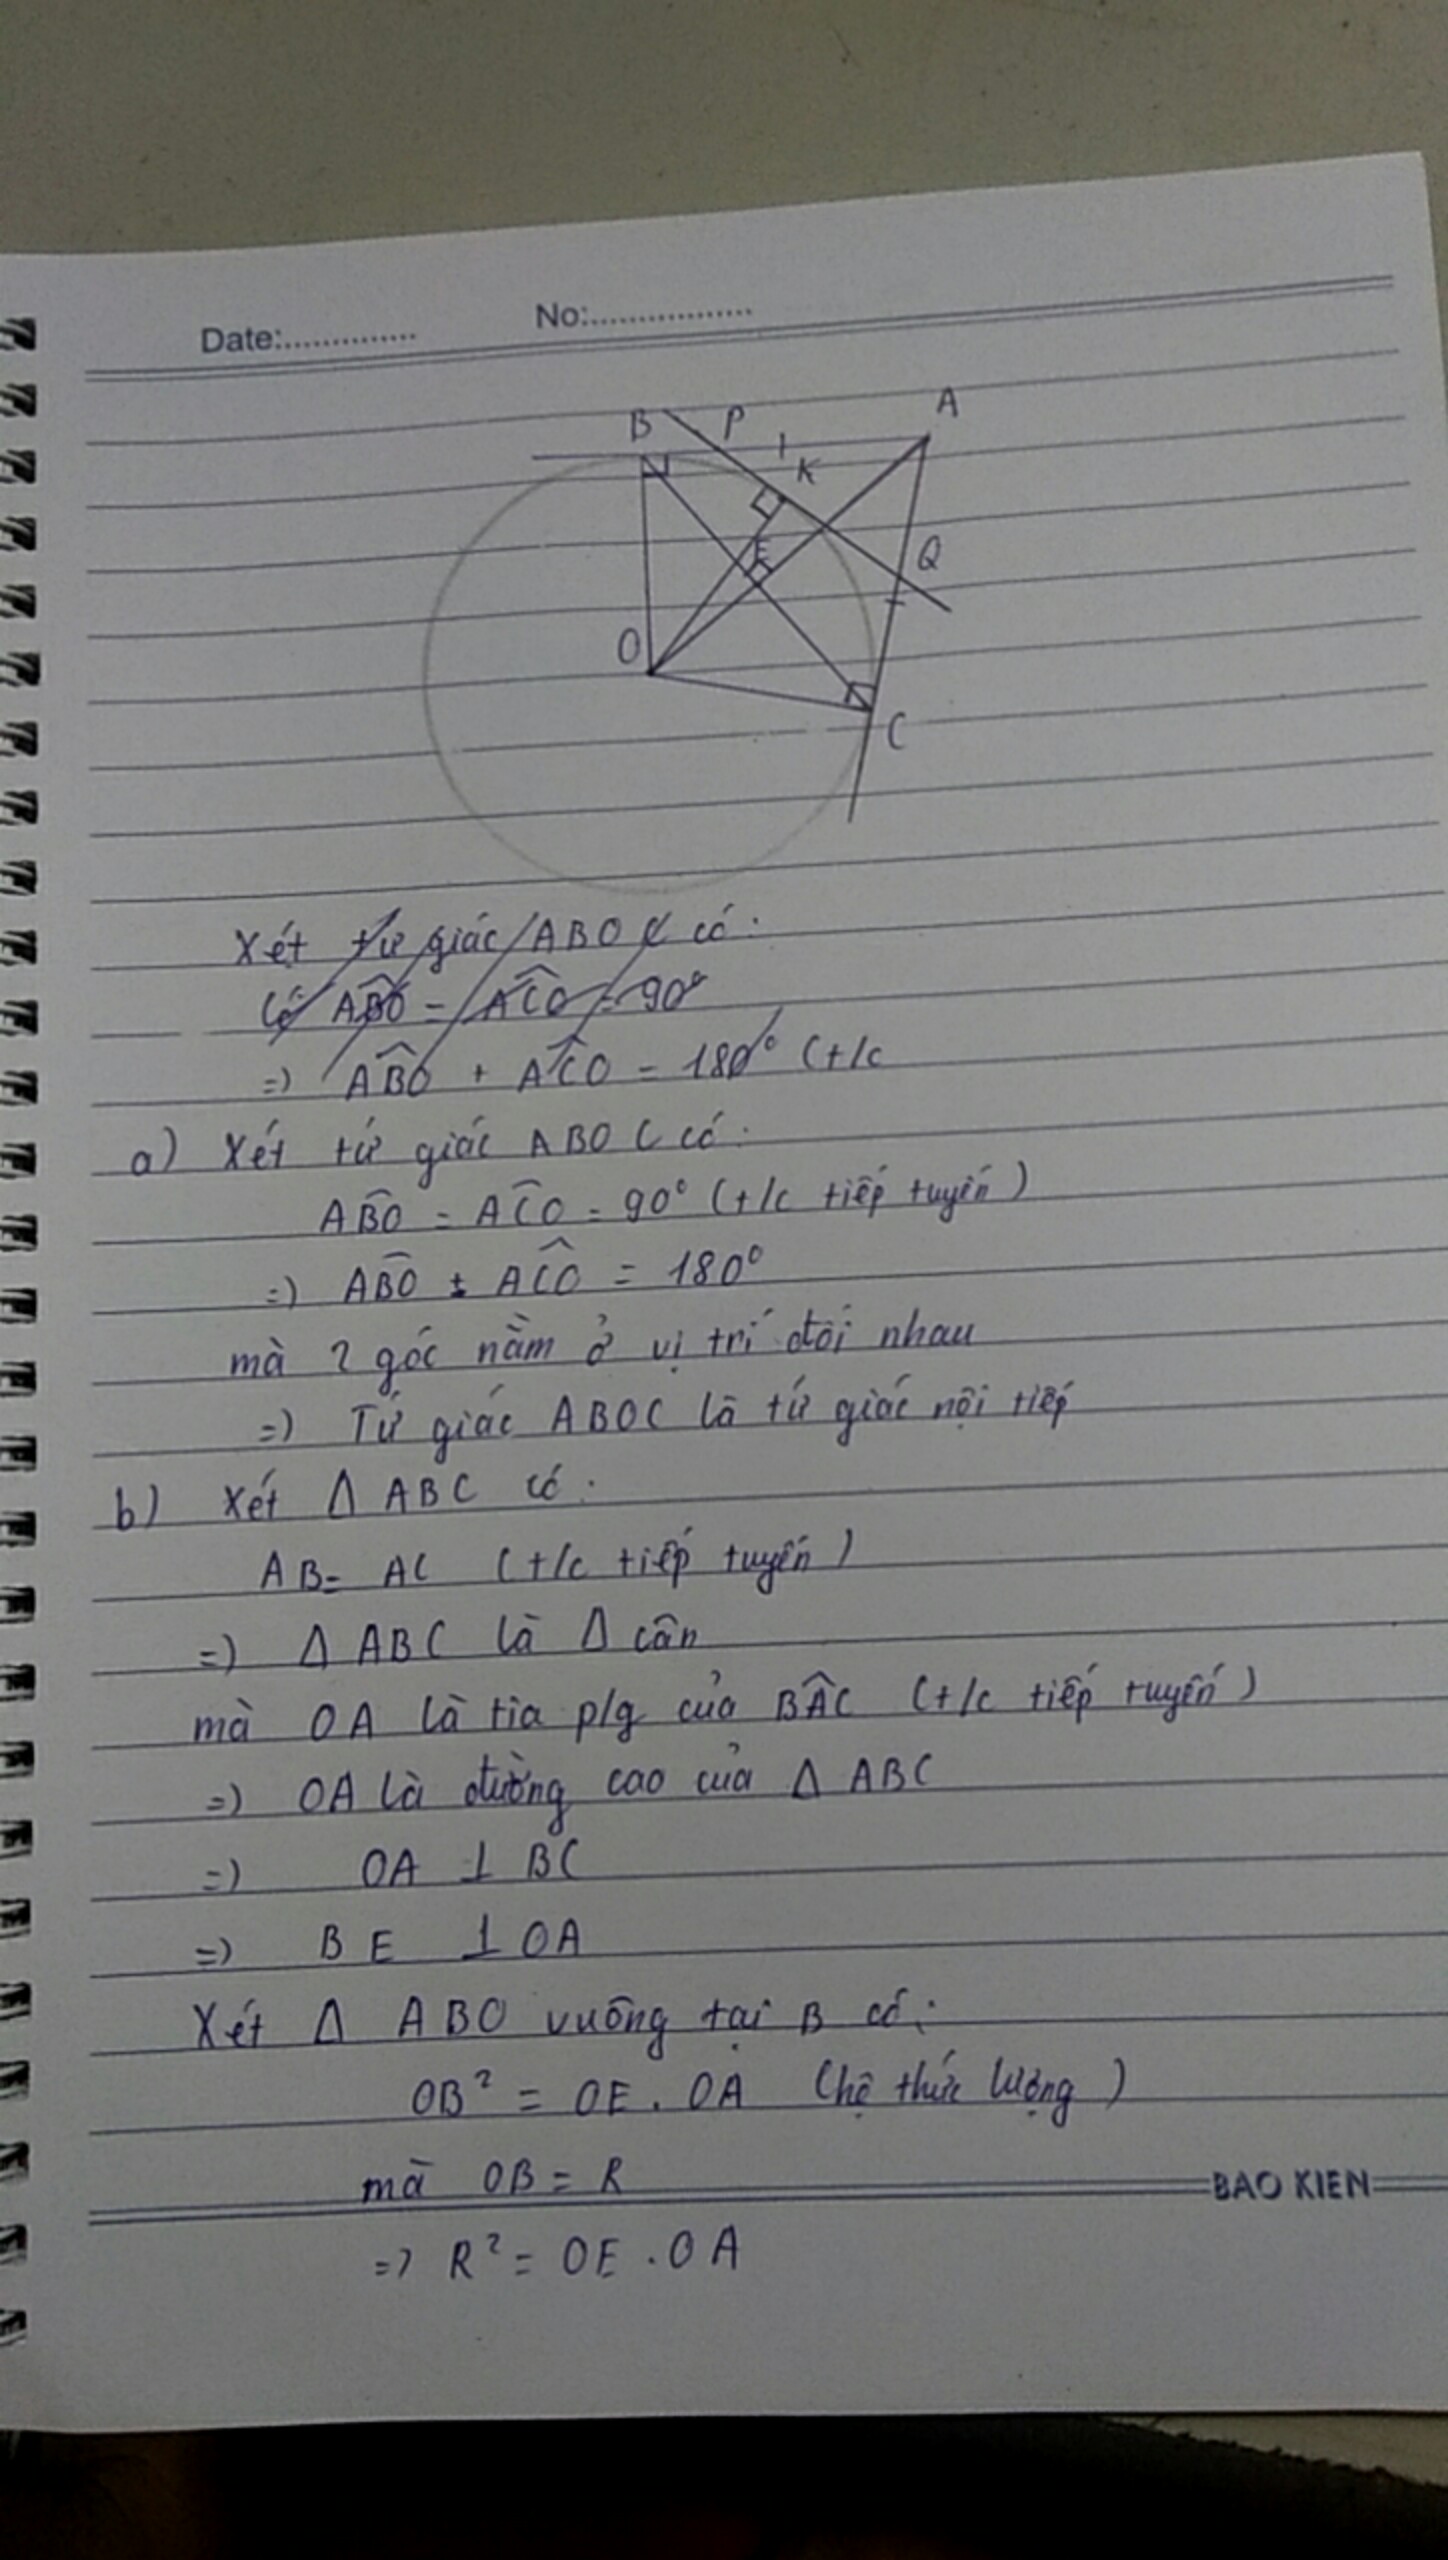 Date:..............
No:.................
B P A
K
E
Q
O
C
Xét tứ giác ABOC có:
Có ABO = ACO = 90°
=) ABO + ACO = 180° (t/c
a) Xét tứ giác ABOC có:
ABO = ACO = 90° (t/c tiếp tuyến)
=) ABO + ACO = 180°
mà 2 góc nằm ở vị trí đối nhau
=) Tứ giác ABOC là tứ giác nội tiếp
b) Xét Δ ABC có:
AB = AC (t/c tiếp tuyến)
=) Δ ABC là Δ cân
mà OA là tia p/g của BAC (t/c tiếp tuyến)
=) OA là đường cao của Δ ABC
=) OA ⊥ BC
=) BE ⊥ OA
Xét Δ ABO vuông tại B có:
OB² = OE . OA (hệ thức lượng)
mà OB = R
BAO KIEN
=) R² = OE . OA